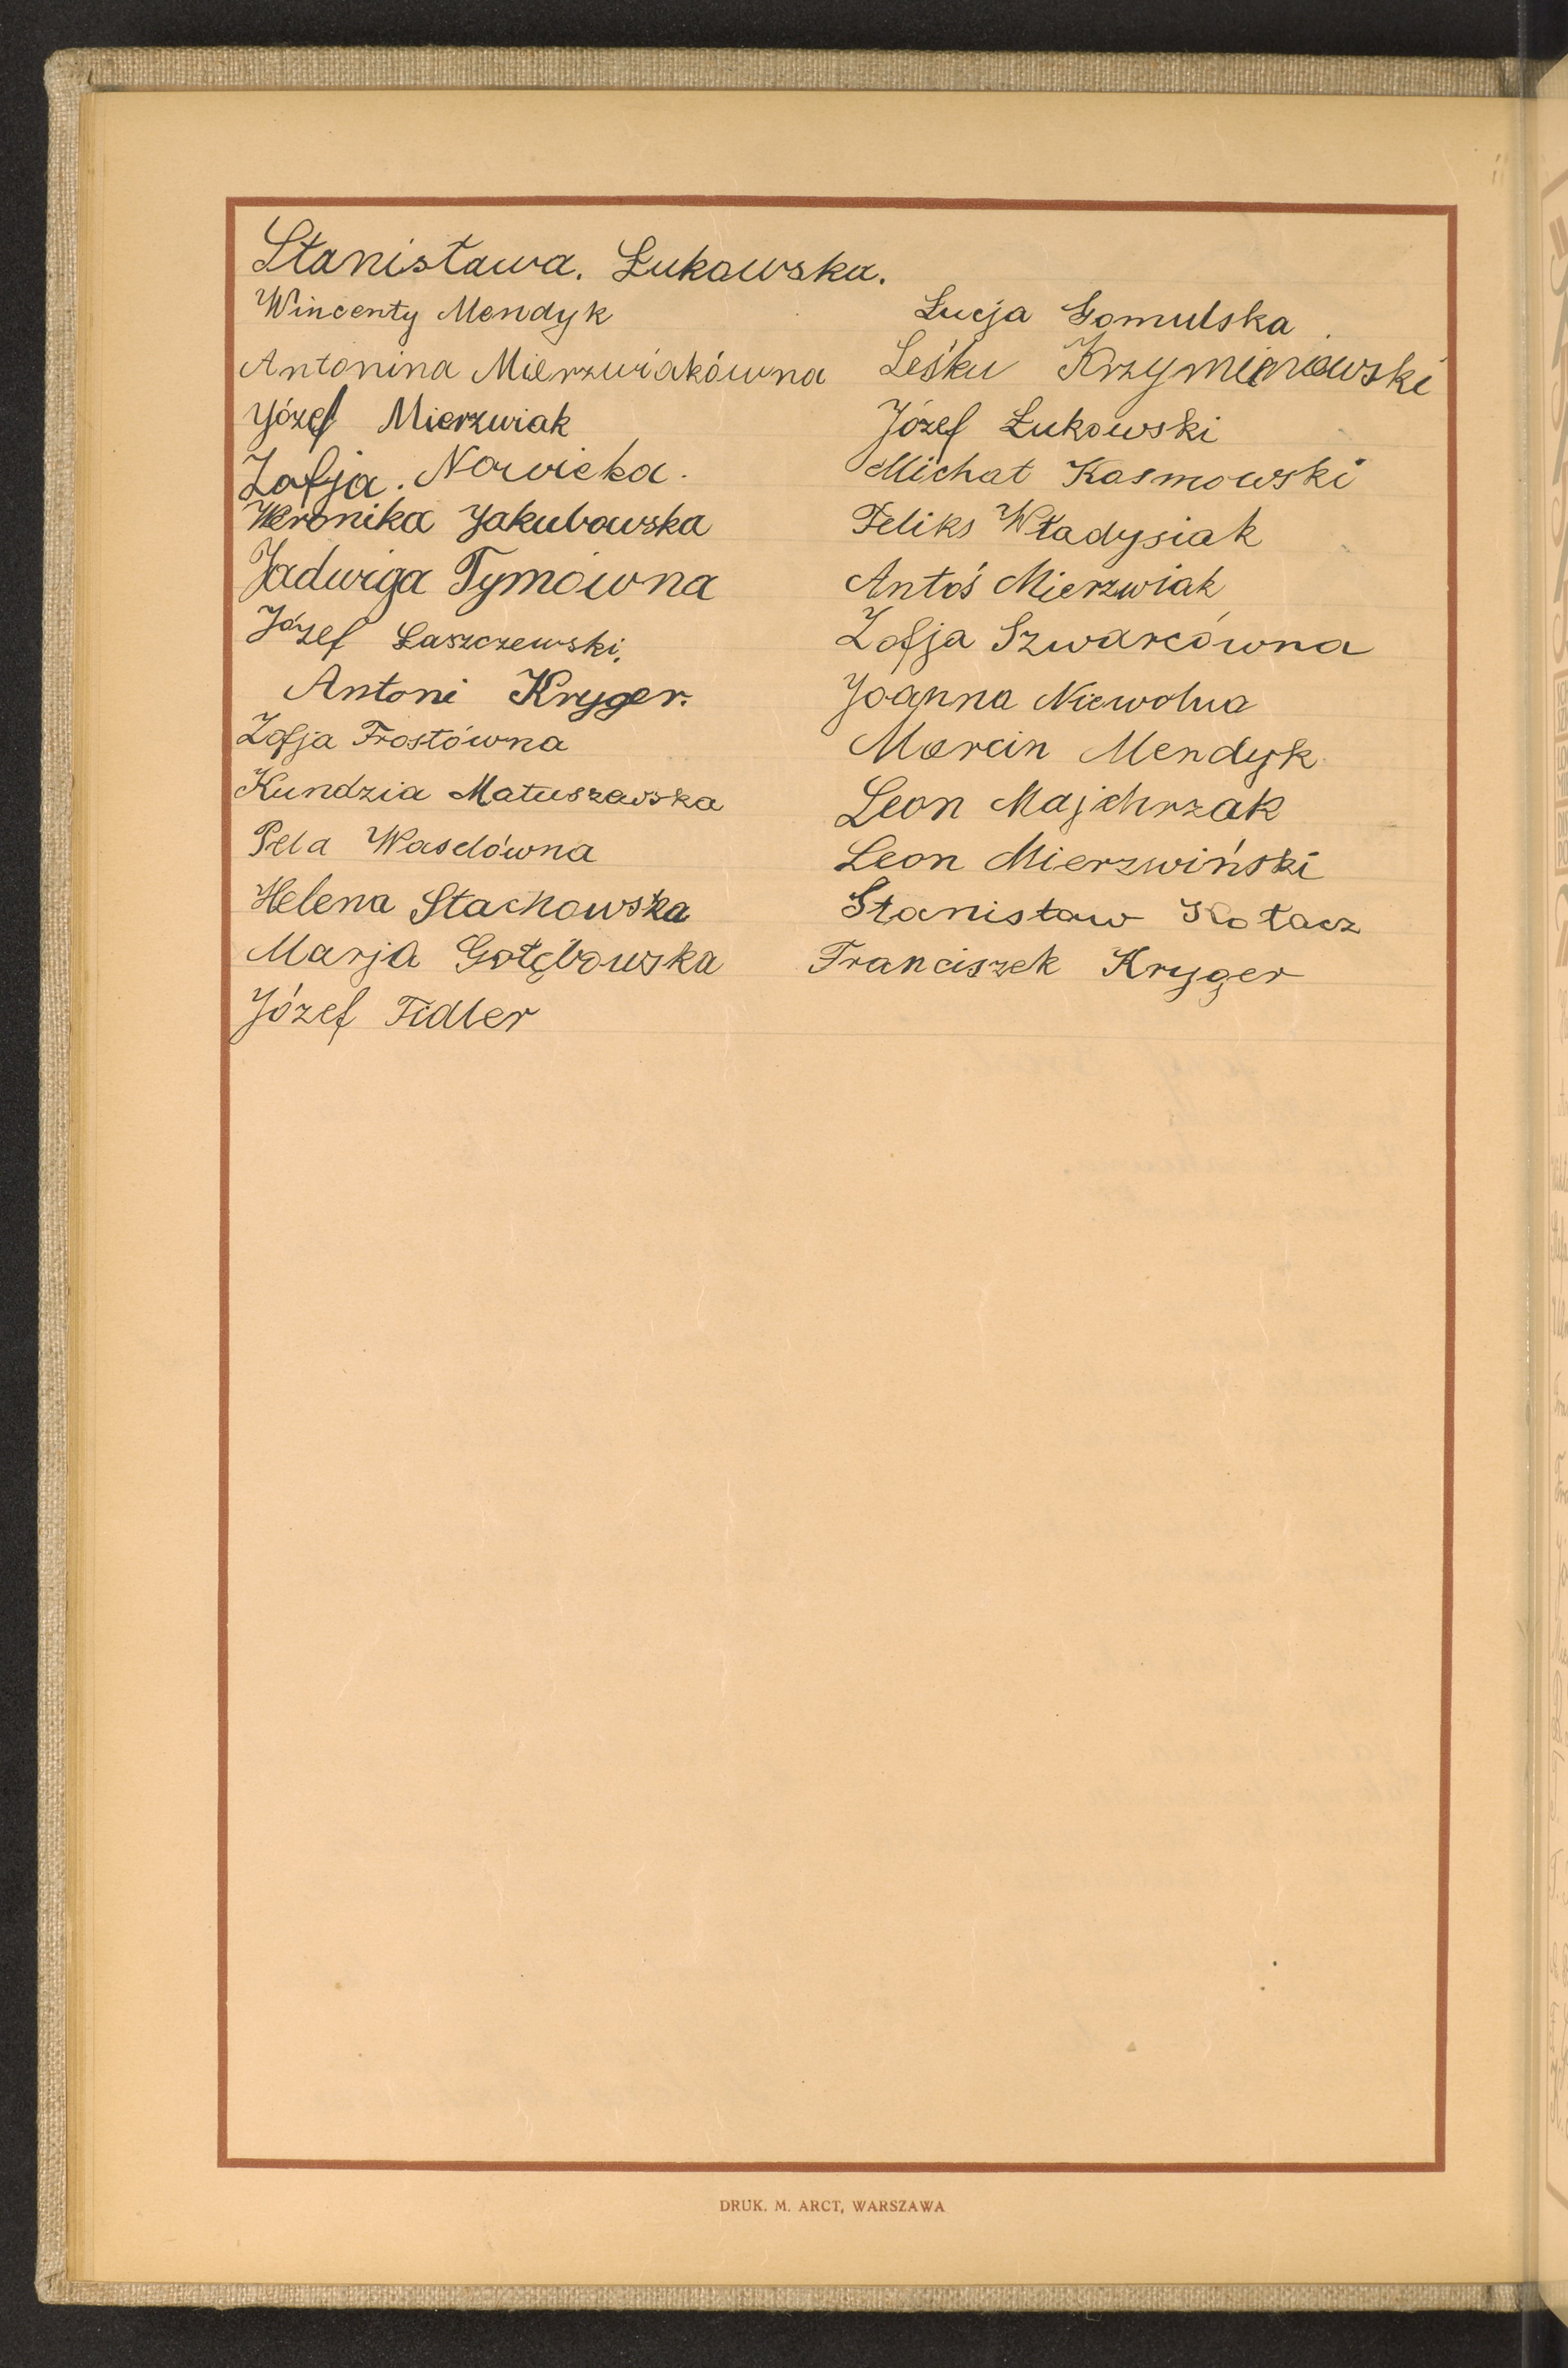 Stanisława. Łukowska.
Wincenty Mendyk
Antonina Mierzwiakówna
Józef Mierzwiak
Zofja. Nowicka.
Weronika Jakubowska
Jadwiga Tymówna
Józef Łaszczewski.
Antoni Kryger.
Zofja Frostówna
Kundzia Matuszewska
Pela Waselówna
Helena Stachowska
Marja Gołębowska
Józef Fidler
Łucja Gomulska
Leśku Krzymieniewski
Józef Łukowski
Michał Kasmowski
Feliks Władysiak
Antoś Mierzwiak
Zofja Szwarcówna
Joanna Niewolna
Marcin Mendyk
Leon Majchrzak
Leon Mierzwiński
Stanisław Kołacz
Franciszek Kryger
DRUK. M. ARCT, WARSZAWA